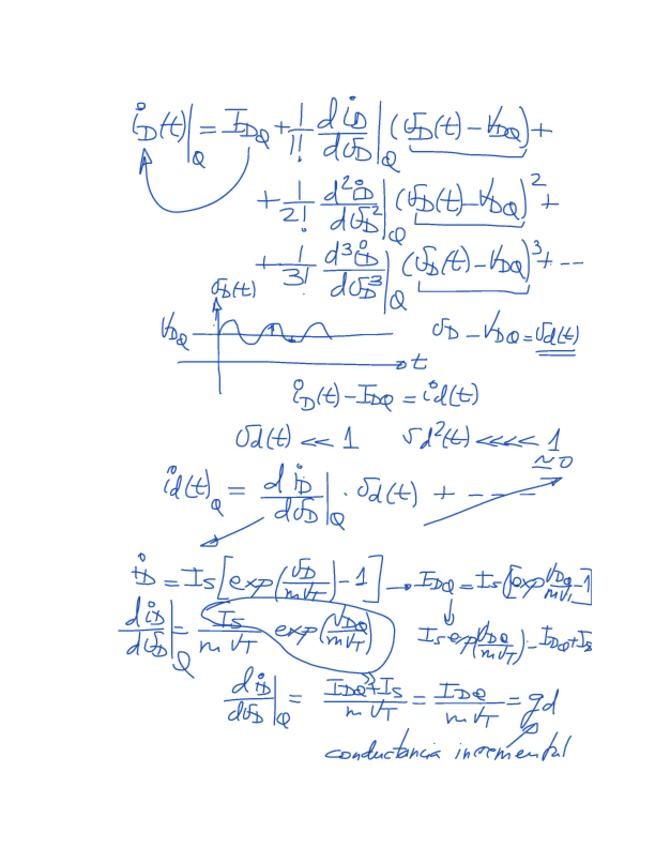 i_D(t)|_Q = I_DQ + 1/1! di_D/dv_D|_Q (v_D(t) - V_DQ) +
+ 1/2! d²i_D/dv_D²|_Q (v_D(t) - V_DQ)² +
+ 1/3! d³i_D/dv_D³|_Q (v_D(t) - V_DQ)³ + ---
v_D(t)
V_DQ v_D - V_DQ = v_d(t)
t
i_D(t) - I_DQ = i_d(t)
v_d(t) << 1 v_d²(t) <<<< 1
≃ 0
i_d(t)_Q = di_D/dv_D|_Q · v_d(t) + ----
i_D = I_S [exp(v_D/mV_T) - 1] → I_DQ = I_S [exp V_DQ/mV_T - 1]
di_D/dv_D|_Q = I_S/mV_T exp(V_DQ/mV_T) I_S exp(V_DQ/mV_T) = I_DQ + I_S
di_D/dv_D|_Q = I_DQ + I_S/mV_T = I_DQ/mV_T = gd
conductancia incremental